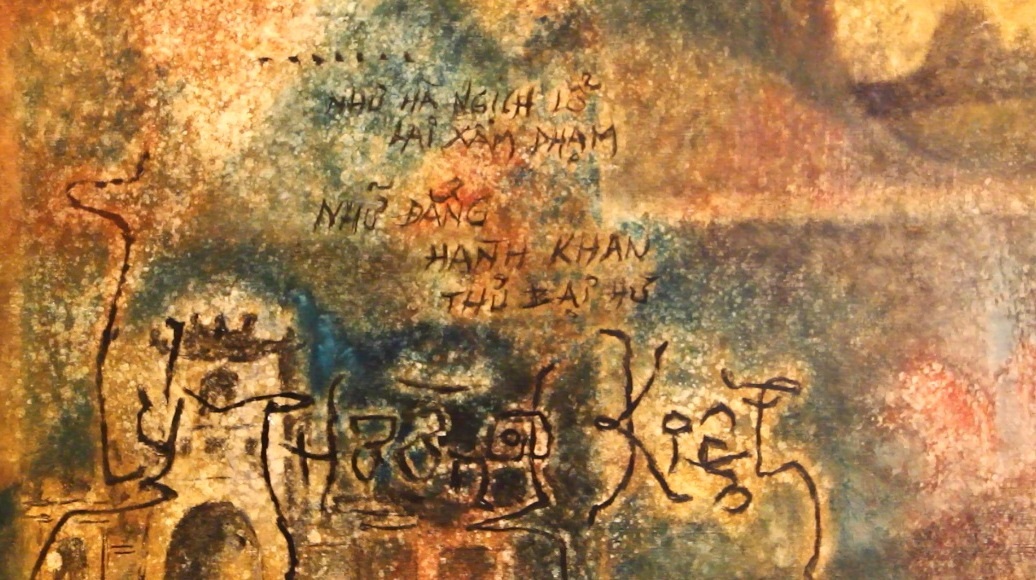 NHƯ HÀ NGỊCH LỖ
LAI XÂM PHẠM
NHỮ ĐẲNG
HÀNH KHAN
THỦ BẠI HƯ
Lý Thường Kiệt